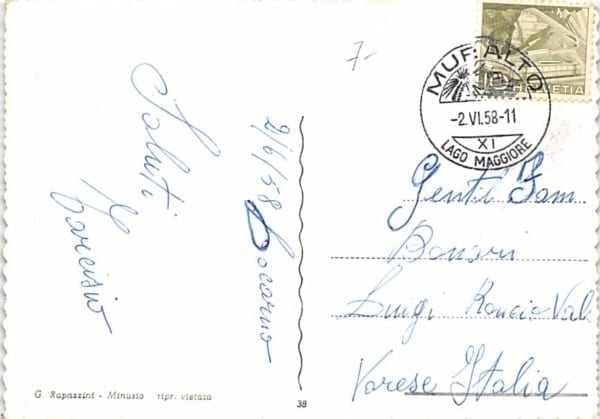 7-
HELVETIA
MURALTO
-2.VI.58-11
XI
LAGO MAGGIORE
Saluti
Tarcisio
2/6/58 Locarno
Gentil Fam
Bonari
Luigi Roncio Val
Varese Italia
G. Rapazzini - Minusio ripr. vietata
38